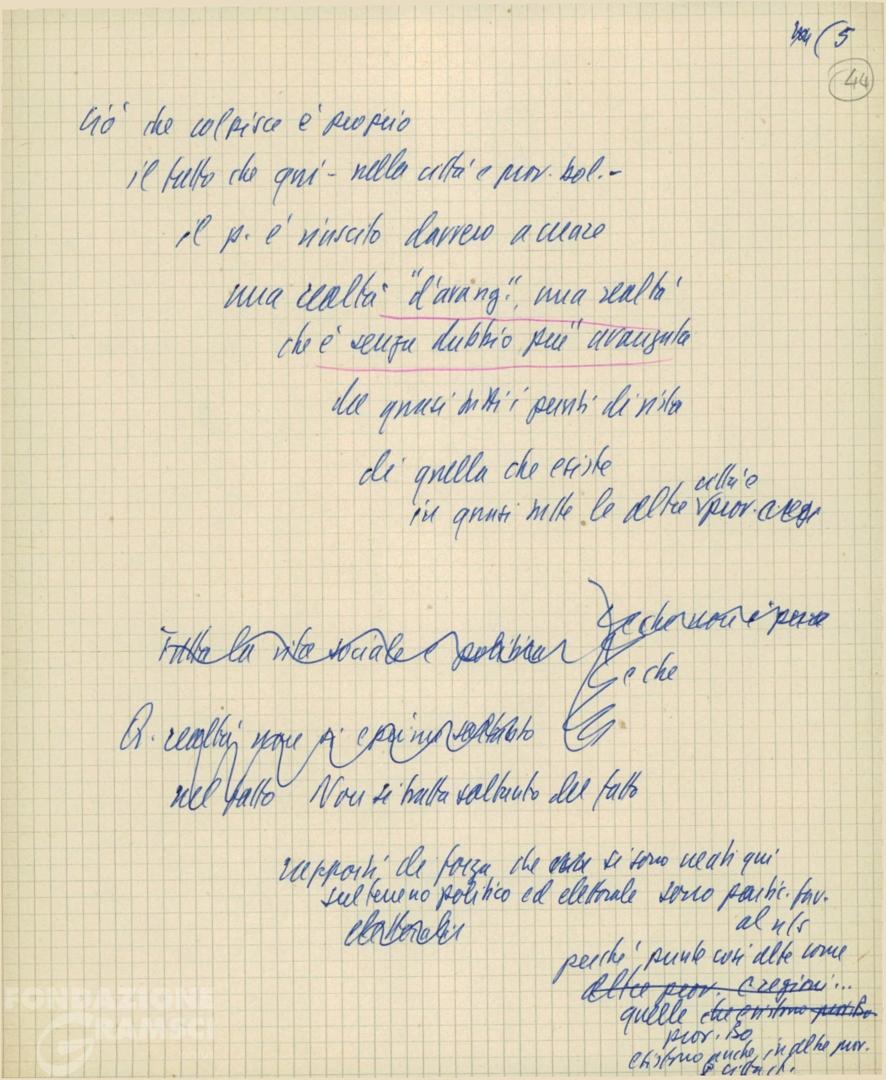 (5
44
Ciò che colpisce è proprio
il fatto che qui - nella città e prov. bol. -
il p. è riuscito davvero a creare
una realtà "d'avang.", una realtà
che è senza dubbio più avanzata
da quasi tutti i punti di vista
di quella che esiste
città e
in quasi tutte le altre prov.
Tutta la vita sociale e politica
e che non è
e che
Q. realtà non si esprime soltanto
nel fatto Non si tratta soltanto del fatto
rapporti di forza che si sono creati qui
sul terreno politico ed elettorale sono partic. fav.
al n/s
elettorali
perché, punte così alte come
altre prov. e regioni...
quelle che esistono prov. Bo
prov. Bo
esistono anche in altre prov.
e città it.
FONDAZIONE
GRAMSCI